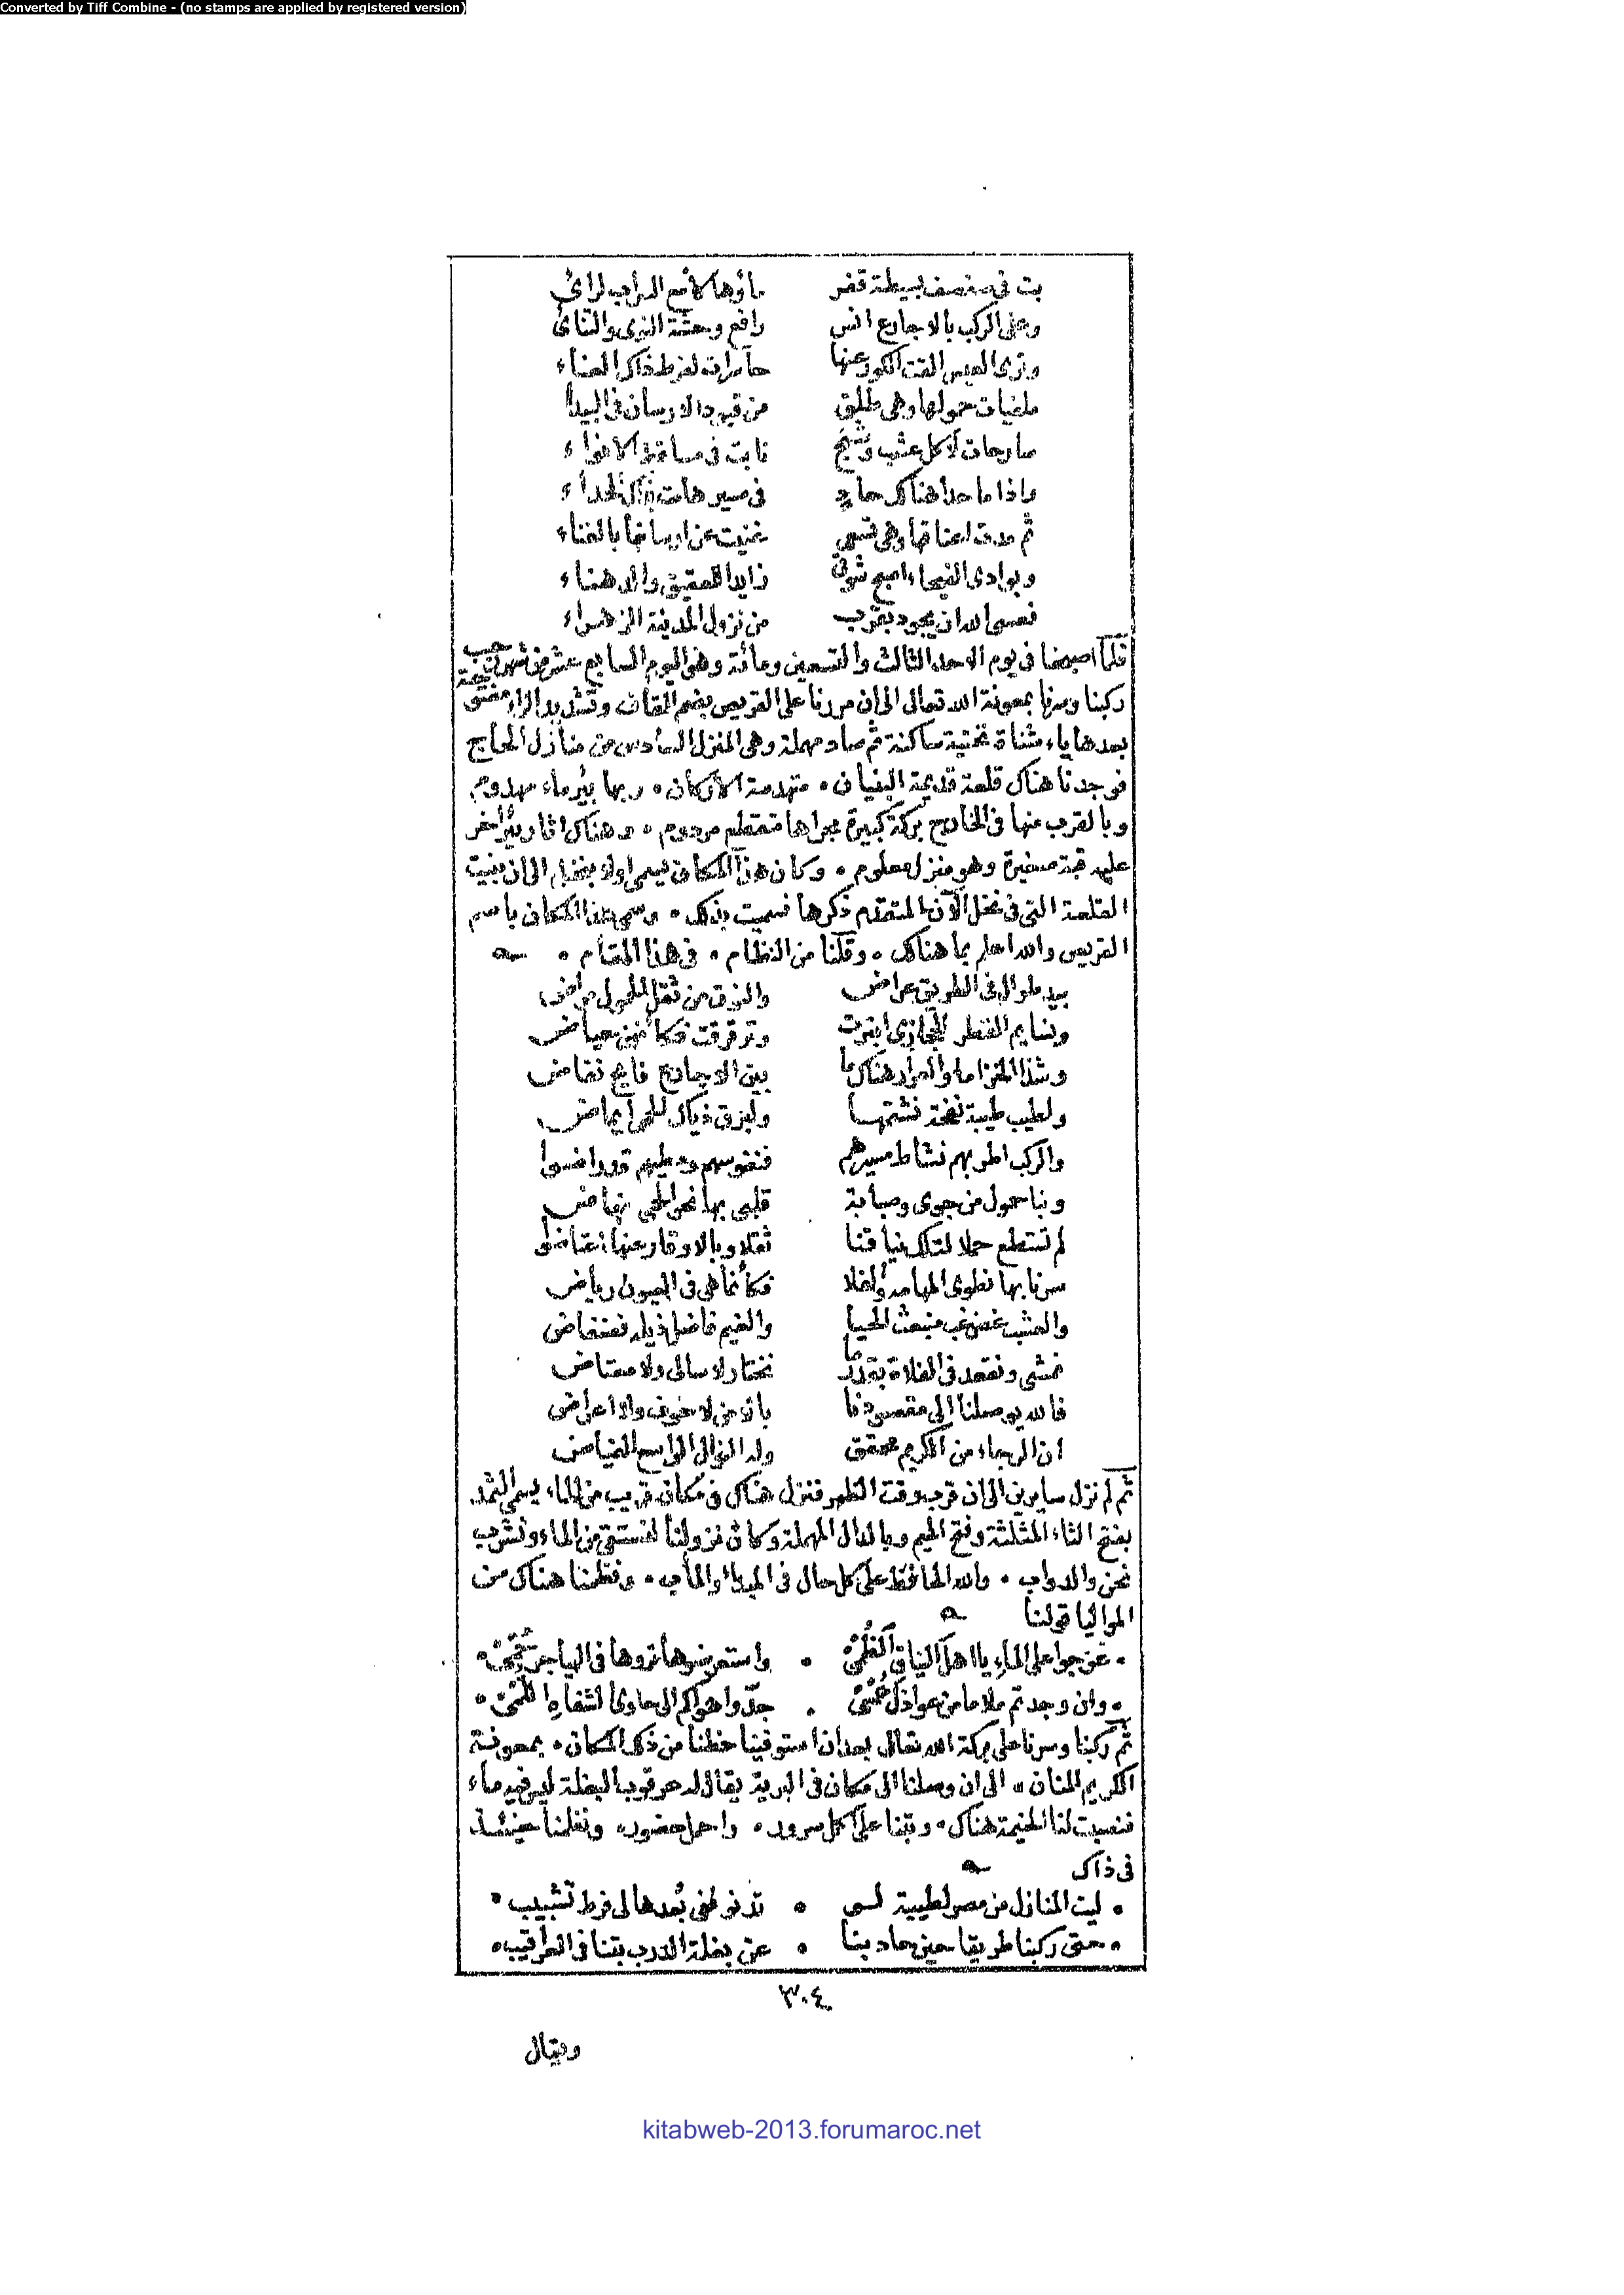 Converted by Tiff Combine - (no stamps are applied by registered version)
بت في منصف بسيطة قفر ماؤها لامع السراب لرائي
وعلى الركب بالاجارع انس رافع وحشة النوى والتنائي
وترى العيس القت الكور عنها حائرات لفرط ذاك العناء
ملقيات حمولها وهي طلق من قيود الارسان في البيداء
سارحات لاكل عشب وشيح نابت في مساقط الانواء
واذا ما حدا هناك حاد في مسير هامت بذاك الحداء
ثم مدت اعناقها وهي تسعى غنيت عن ارسانها بالغناء
وبوادي الفيحاء اصبح شوقي زايدا للعقيق والدهناء
فعسى الله ان يجود بقرب من نزول المدينة الزهراء
فلما اصبحنا في يوم الاحد الثالث والتسعين ومائة وهو اليوم السابع عشر من شهر رجب
ركبنا وسرنا بمعونة الله تعالى الى ان مررنا على القريص بضم القاف وتشديد الراء مفتوحة
بعدها ياء مثناة تحتية ساكنة ثم صاد مهملة وهي المنزل السادس من منازل الحاج
فوجدنا هناك قلعة قديمة البنيان ۰ متهدمة الاركان ۰ وبها بئر ماء مهدوم
وبالقرب منها في الخارج بركة كبيرة مجراها متقطع مردوم ۰ وهناك اثار بئر اخر
عليه قبة صغيرة وهو منزل معلوم ۰ وكان هذا المكان يسمى اولا بنخل الى ان بنيت
القلعة التي في نخل الآن المتقدم ذكرها فسميت بذلك ۰ وسمي هذا المكان باسم
القريص والله اعلم بما هناك ۰ وقلنا من النظام ۰ في هذا المقام ۰
بيد طوال في الطريق عراض والنوق من ثقل الحمول مراض
ونسايم القطر الحجازي انبرت وترقرقت فكأنهن حياض
وشذا الخزاما والعرار هناك ما بين الاجارع فايح نفاض
ولطيب طيبة نفحة نشتمها ولبرق ذياك الحمى ايماض
والركب اطربهم نشاط مسيرهم فنفوسهم ومطيهم قد راضوا
وبنا حمول من جوى وصبابة قلبي بها نحو الحمى نهاض
لم تستطع حملا لتلك نياقنا ثقلا وبالاوقار عنها اعتاضوا
سرنا بها نطوي المهامه والفلا فكأنما هي في العيون رياض
والعشب غض غب منبعث الحيا والغيم فاضل ذيله فضفاض
نمشي ونقعد في الفلاة بقدر ما نختار لا سالي ولا معتاض
فالله يوصلنا الى مقصودنا بالامن لا خوف ولا اعراض
ان الرجاء من الكريم محقق وله النوال الواسع الفياض
ثم لم نزل سايرين الى ان قرب وقت الظهر فنزل هناك في مكان قريب من الماء يسمى الثمد
بفتح الثاء المثلثة وفتح الميم وبالدال المهملة وكان نزولنا لنستقي من الماء ونشرب
نحن والدواب ۰ والله الحافظ على كل حال في المبدا والمآب ۰ ونظمنا هناك من
المواليا قولنا
۰ عوجوا على الماء يا اهل النياق الظمئ ۰ واستعرضوها تروها في الهياجر ۰
۰ وان وجدتم ملاما من عواذل ۰ جدوا هواكم الى حاوي الشفاه اللمئ ۰
ثم ركبنا وسرنا على بركة الله تعالى بعد ان استوفينا حظنا من ذلك المكان ۰ بمعونة
الكريم المنان ۰ الى ان وصلنا الى مكان في البرية يقال له عرقوب البغلة ليس فيه ماء
فنصبت لنا الخيمة هناك ۰ وبتنا على اكمل سرور ۰ واجمل حضور ۰ ونظمنا حينئذ
في ذاك
۰ ليت المنازل من مصر لطيبة لي ۰ تدنو ففي بعدها لي فرط تشبيب ۰
۰ حتى ركبنا طريقا حين حاد بنا ۰ عن بغلة الدرب بتنا في العراقيب ۰
٣٠٤
ويقال
kitabweb-2013.forumaroc.net